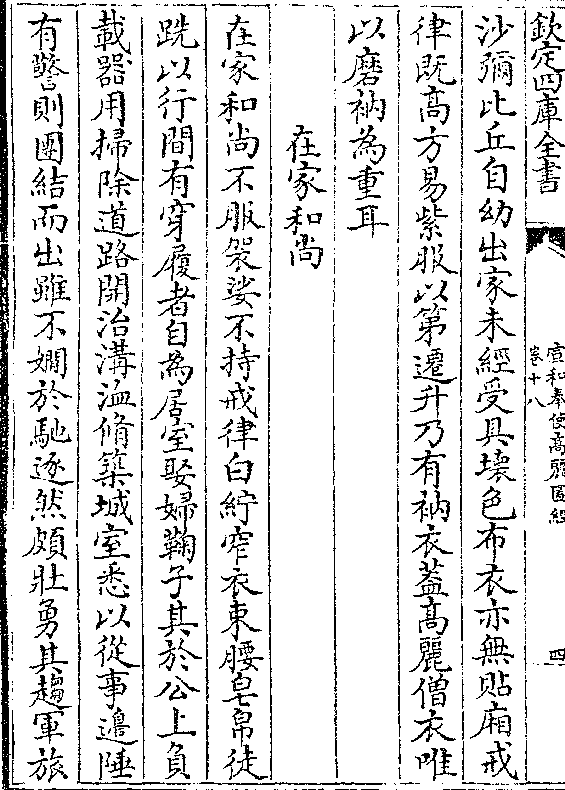 欽定四庫全書
宣和奉使高麗圖經
卷十八
四
沙彌比丘自幼出家未經受具壞色布衣亦無貼廂戒
律既高方易紫服以第遷升乃有衲衣蓋高麗僧衣唯
以磨衲為重耳
在家和尚
在家和尚不服袈裟不持戒律白紵窄衣束腰皂帛徒
跣以行間有穿履者自為居室娶婦鞠子其於公上負
載器用掃除道路開治溝洫脩築城室悉以從事邊陲
有警則團結而出雖不嫺於馳逐然頗壯勇其趨軍旅